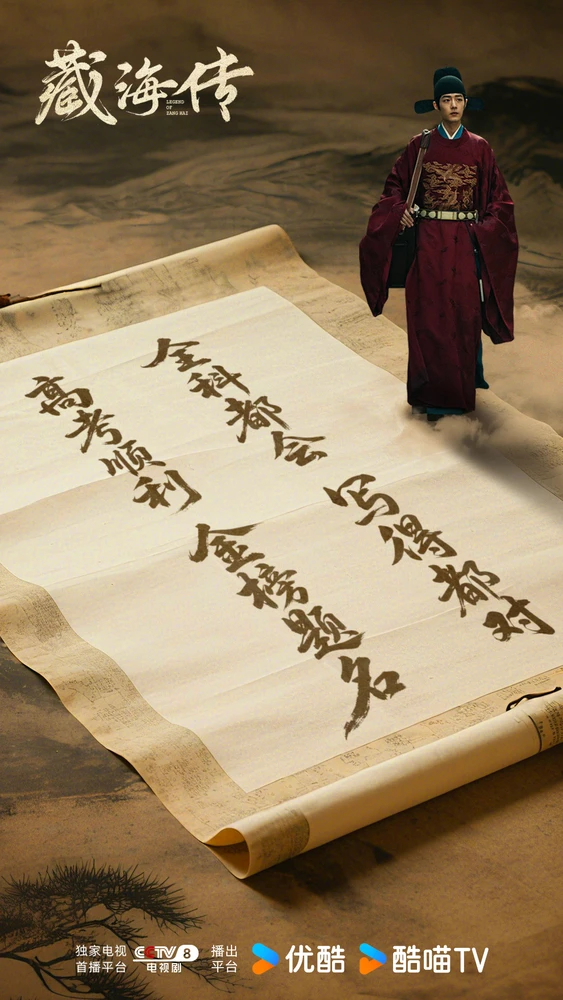 藏海传
LEGEND
OF
ZANG HAI
全科都会 写得都对
高考顺利 金榜题名
独家电视
首播平台
CCTV 8
电视剧
播出
平台
优酷
酷喵TV